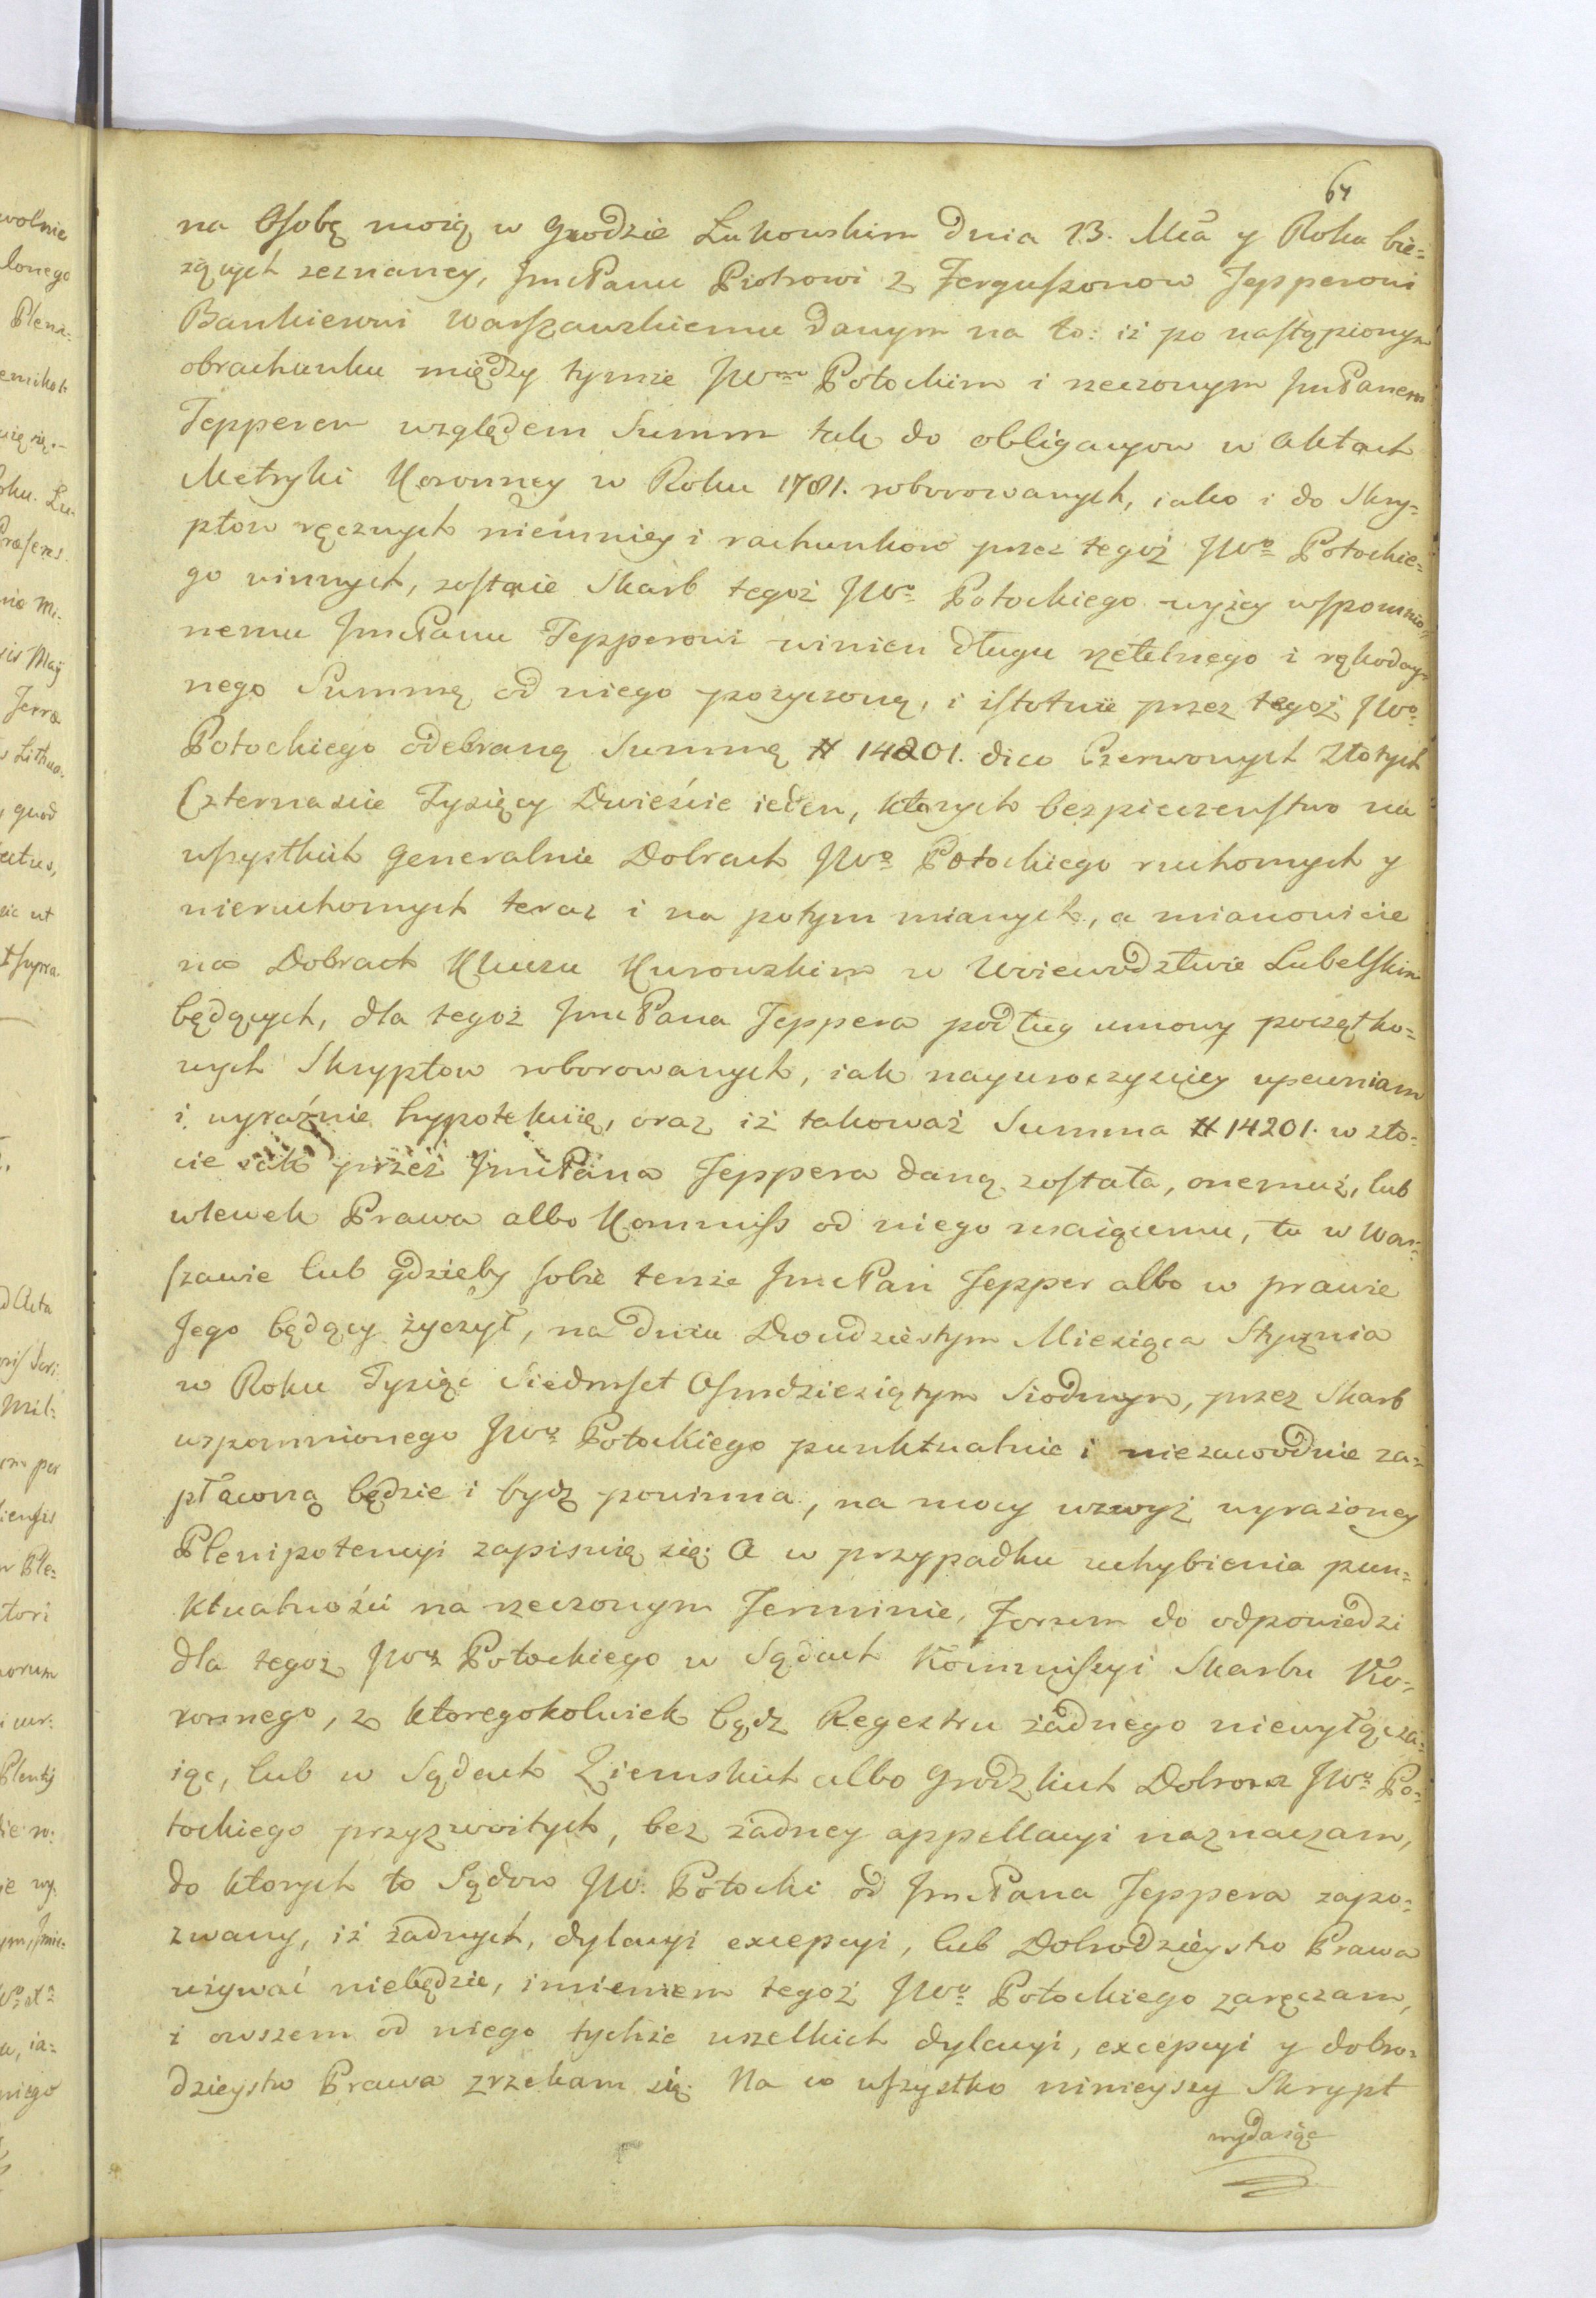 64
na Osobę moią w Grodzie Łukowskim Dnia 13. Mca y Roku bie=
żących zeznaney, Jmć Panu Piotrowi z Fergussonow Tepperowi
Bankierowi Warszawskiemu danym na to: iż po nastąpionym
obrachunku między tymże JWm Potockim i rzeczonym Jmć Panem
Tepperem względem Summ tak do obligacyow w Aktach
Metryki Koronney w Roku 1781. roborowanych, iako i do Skry=
ptow ręcznych niemniey i rachunkow przez tegoż JWo Potockie=
go winnych, zostaie Skarb tegoż JWo Potockiego wyżey wspomnio=
nemu Jmć Panu Tepperowi winien długu rzetelnego i rękoday=
nego Summę od niego pożyczoną, i istotnie przez tegoż JWo
Potockiego odebraną Summę # 14201. dico Czerwonych Złotych
Czternaście Tysięcy Dwieście ieden, ktorych bezpieczenstwo na
wszystkich generalnie Dobrach JWo Potockiego ruchomych y
nieruchomych teraz i na potym mianych, a mianowicie
na Dobrach Kluczu Kurowskim w Woiewodztwie Lubelskim
będących, dla tegoż Jmć Pana Teppera podług umowy początko=
wych Skryptow roborowanych, iak nayuroczyściey upewniam
i wyraźnie hypotekuię, oraz iż takoważ Summa # 14201. w zło=
cie iak przez Jmć Pana Teppera daną została, onemuż, lub
wlewek Prawa albo Kommiss od niego maiącemu, tu w War=
szawie lub gdzieby sobie tenże Jmć Pan Tepper albo w prawie
Jego będący życzył, na dniu Dwudziestym Miesiąca Stycznia
w Roku Tysiąc Siedmset Osmdziesiątym Siodmym, przez Skarb
wspomnionego JWo Potockiego punktualnie i niezawodnie za=
płaconą będzie i bydź powinna, na mocy wzwyż wyrażoney
Plenipotencyi zapisuię się: A w przypadku uchybienia pun=
ktualności na rzeczonym Terminie, Forum do odpowiedzi
dla tegoż JWo Potockiego w Sądach Kommissyi Skarbu Ko=
ronnego, z ktoregokolwiek bądź Regestru żadnego niewyłącza=
iąc, lub w Sądach Ziemskich albo Grodzkich Dobrom JWo Po=
tockiego przyzwoitych, bez żadney appellacyi naznaczam,
do ktorych to Sądow JW. Potocki od Jmć Pana Teppera zapo=
zwany, iż żadnych, dylacyi excepcyi, lub Dobrodzieystw Prawa
używać niebędzie, imieniem tegoż JWo Potockiego zaręczam,
i owszem od niego tychże wszelkich dylacyi, excepcyi y dobro=
dzieystw Prawa zrzekam się. Na co wszystko ninieyszy Skrypt
wydaiąc